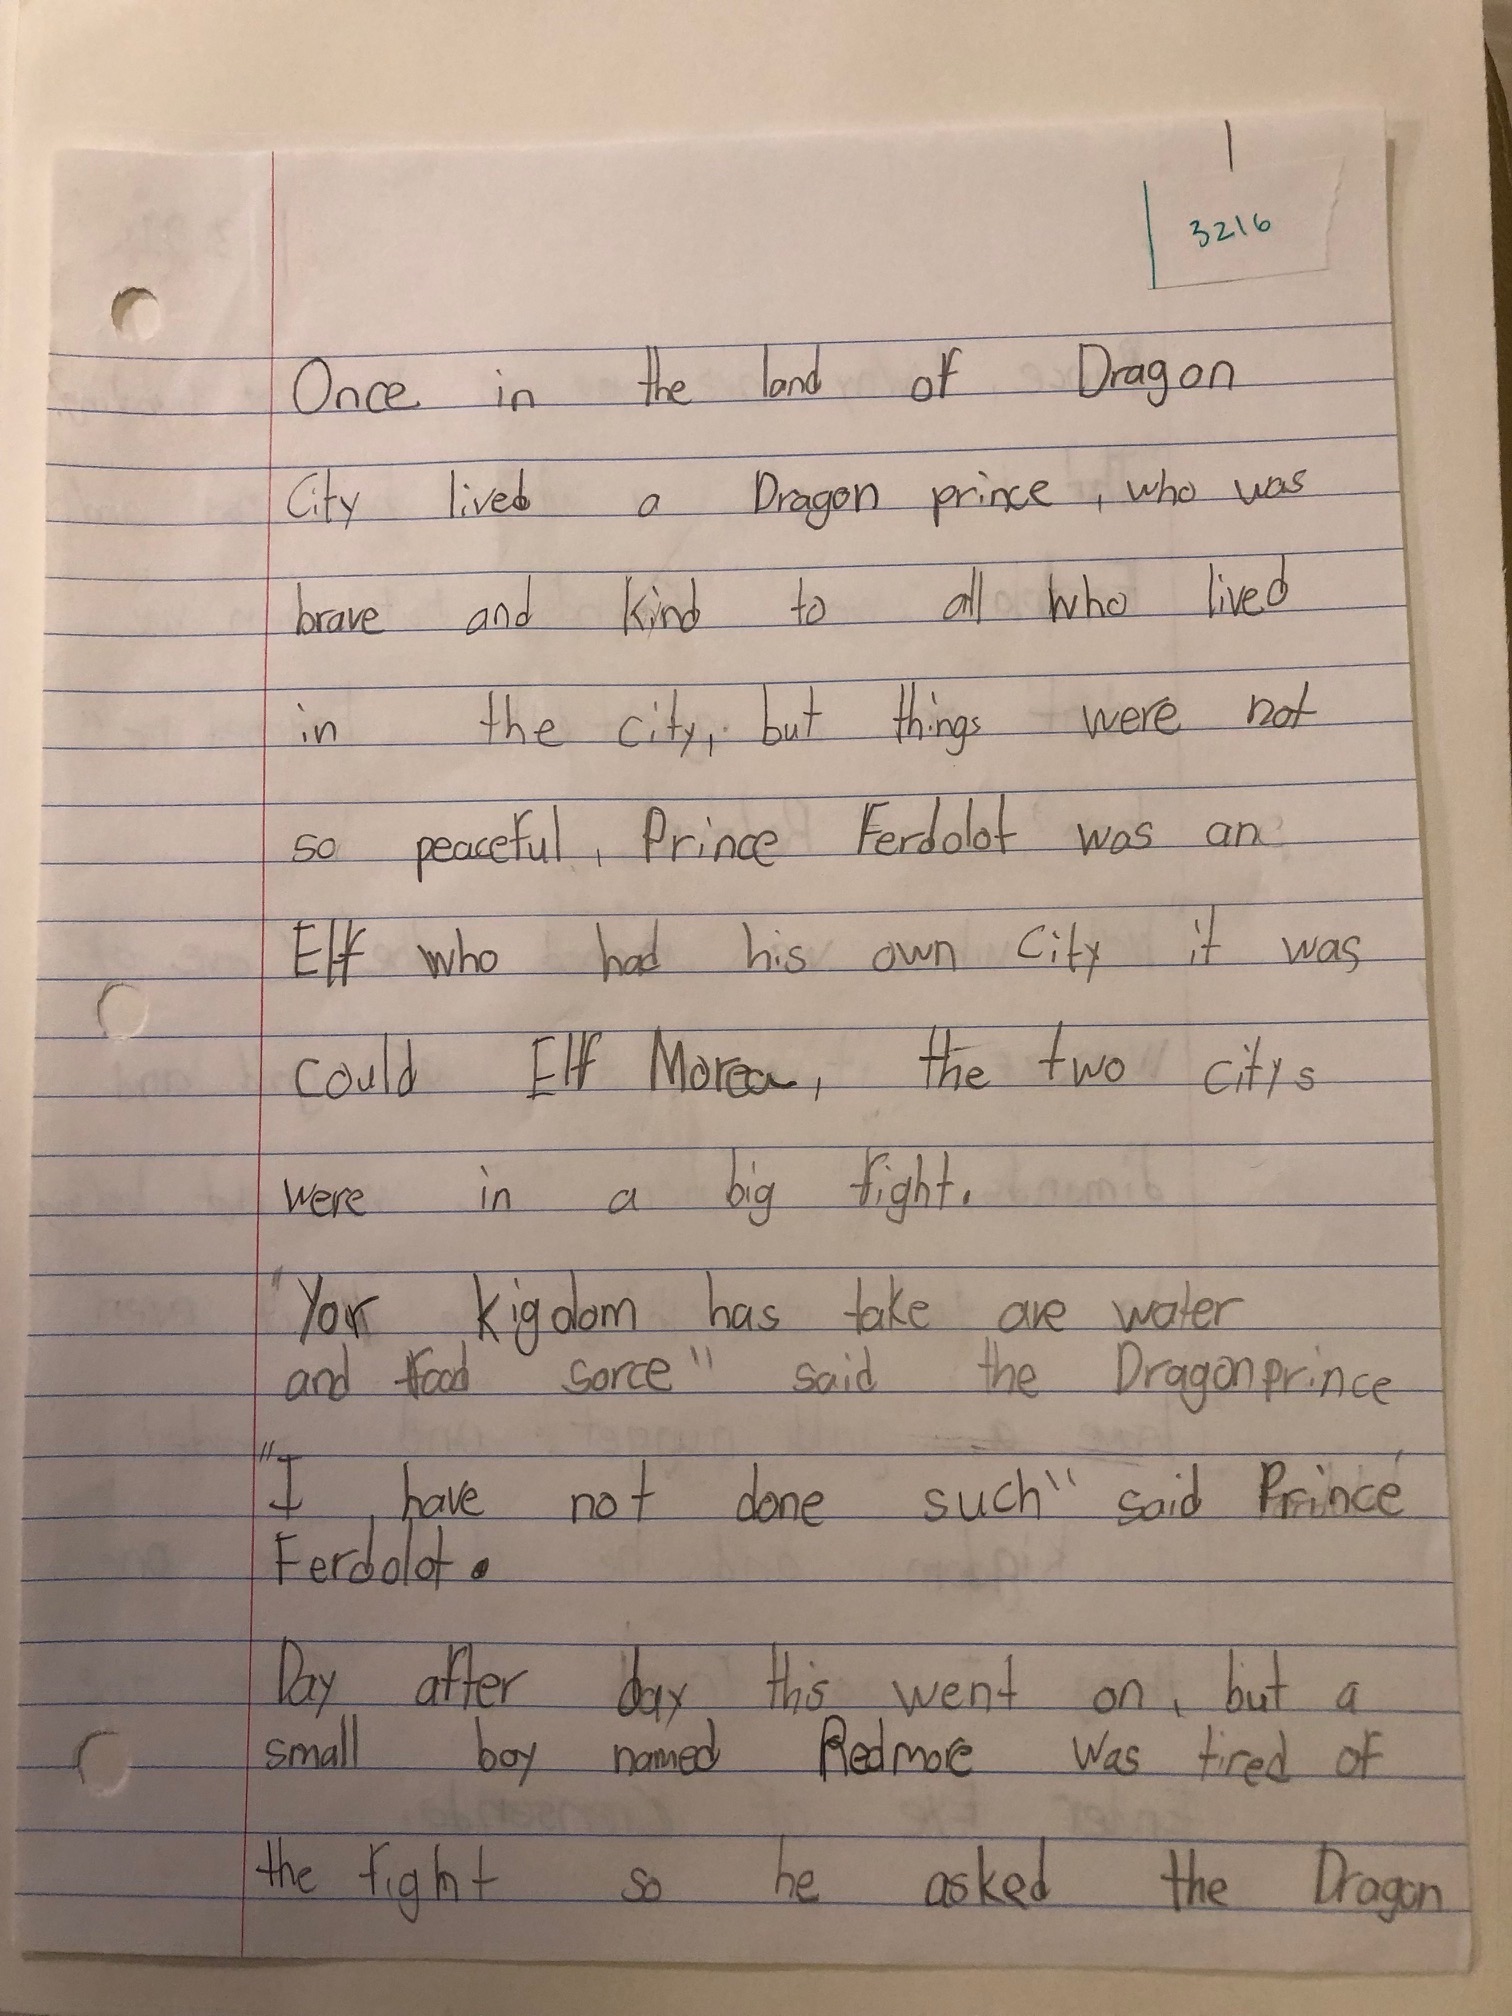 1
3216
Once in the land of Dragon
City lived a Dragon prince, who was
brave and kind to all who lived
in the city, but things were not
so peaceful, Prince Ferdolot was an
Elf who had his own City it was
could Elf Morea, the two citys
were in a big fight.
"Yor kigdom has take are water
and food sorce" said the Dragon prince
"I have not done such" said Prince
Ferdolot.
Day after day this went on, but a
small boy named Redmore was tired of
the fight so he asked the Dragon